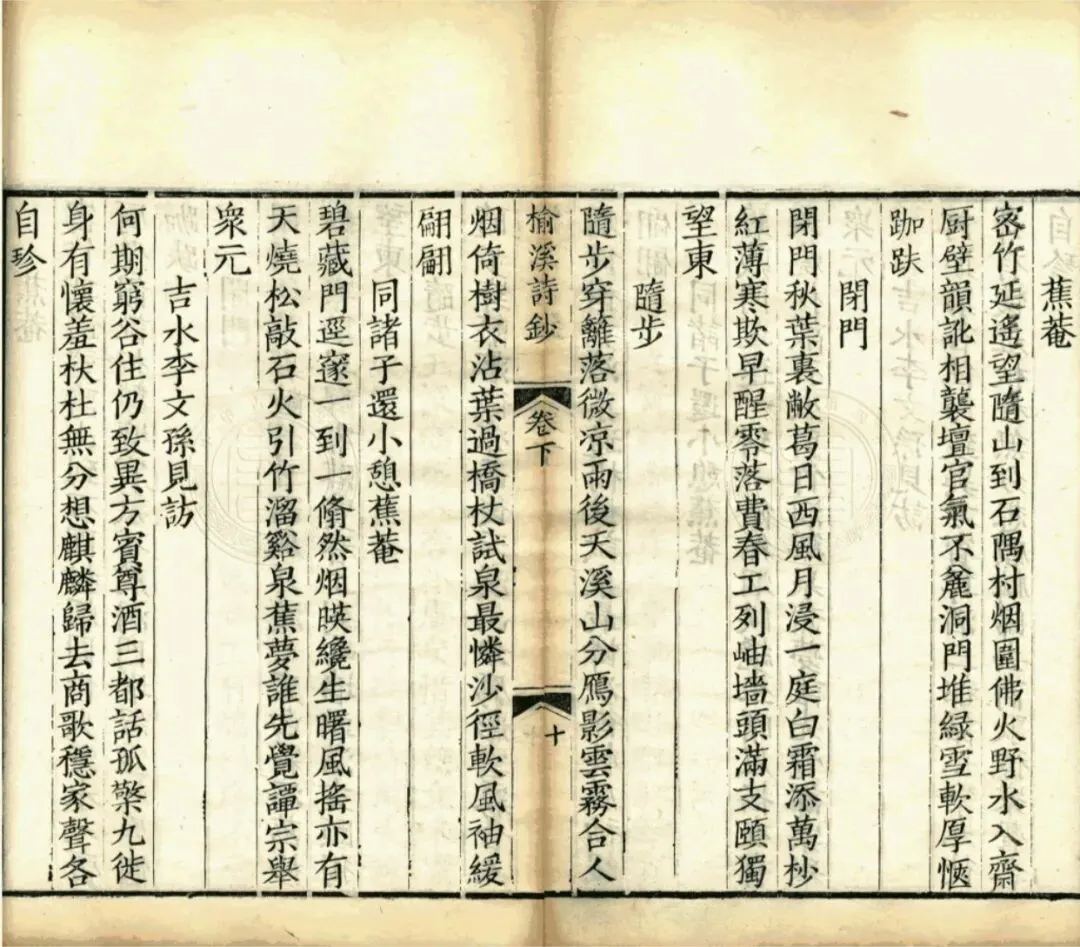 蕉菴
宻竹延遙望隨山到石隅村烟圍佛火野水入齋
厨壁韻訛相襲壇官氣不麄洞門堆緑雪軟厚愜
跏趺
閉門
閉門秋葉裏敝葛日西風月浸一庭白霜添萬杪
紅薄寒欺早醒零落費春工列岫墻頭滿支頤獨
望東
隨步
隨步穿籬落微凉雨後天溪山分鴈影雲霧合人
榆溪詩鈔
卷下
十
烟倚樹衣沾葉過橋杖試泉最憐沙徑軟風袖緩
翩翩
同諸子還小憩蕉菴
碧藏門逕邃一到一翛然烟暎纔生曙風搖亦有
天燒松敲石火引竹溜谿泉蕉夢誰先覺譚宗舉
衆元
吉水李文孫見訪
何期窮谷住仍致異方賓尊酒三都話孤檠九徙
身有懷羞杕杜無分想麒麟歸去商歌穩家聲各
自珍